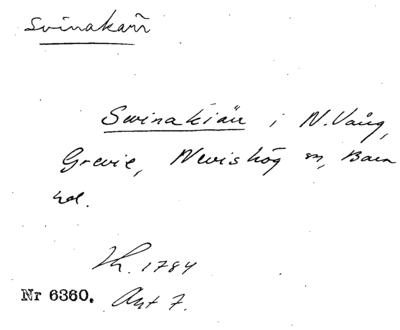 Svinakärr
Swinakiär i N. Vång,
Grevie, Nevishög sn, Bara
hd.
Lh. 1784
Nr 6360. Akt 7.